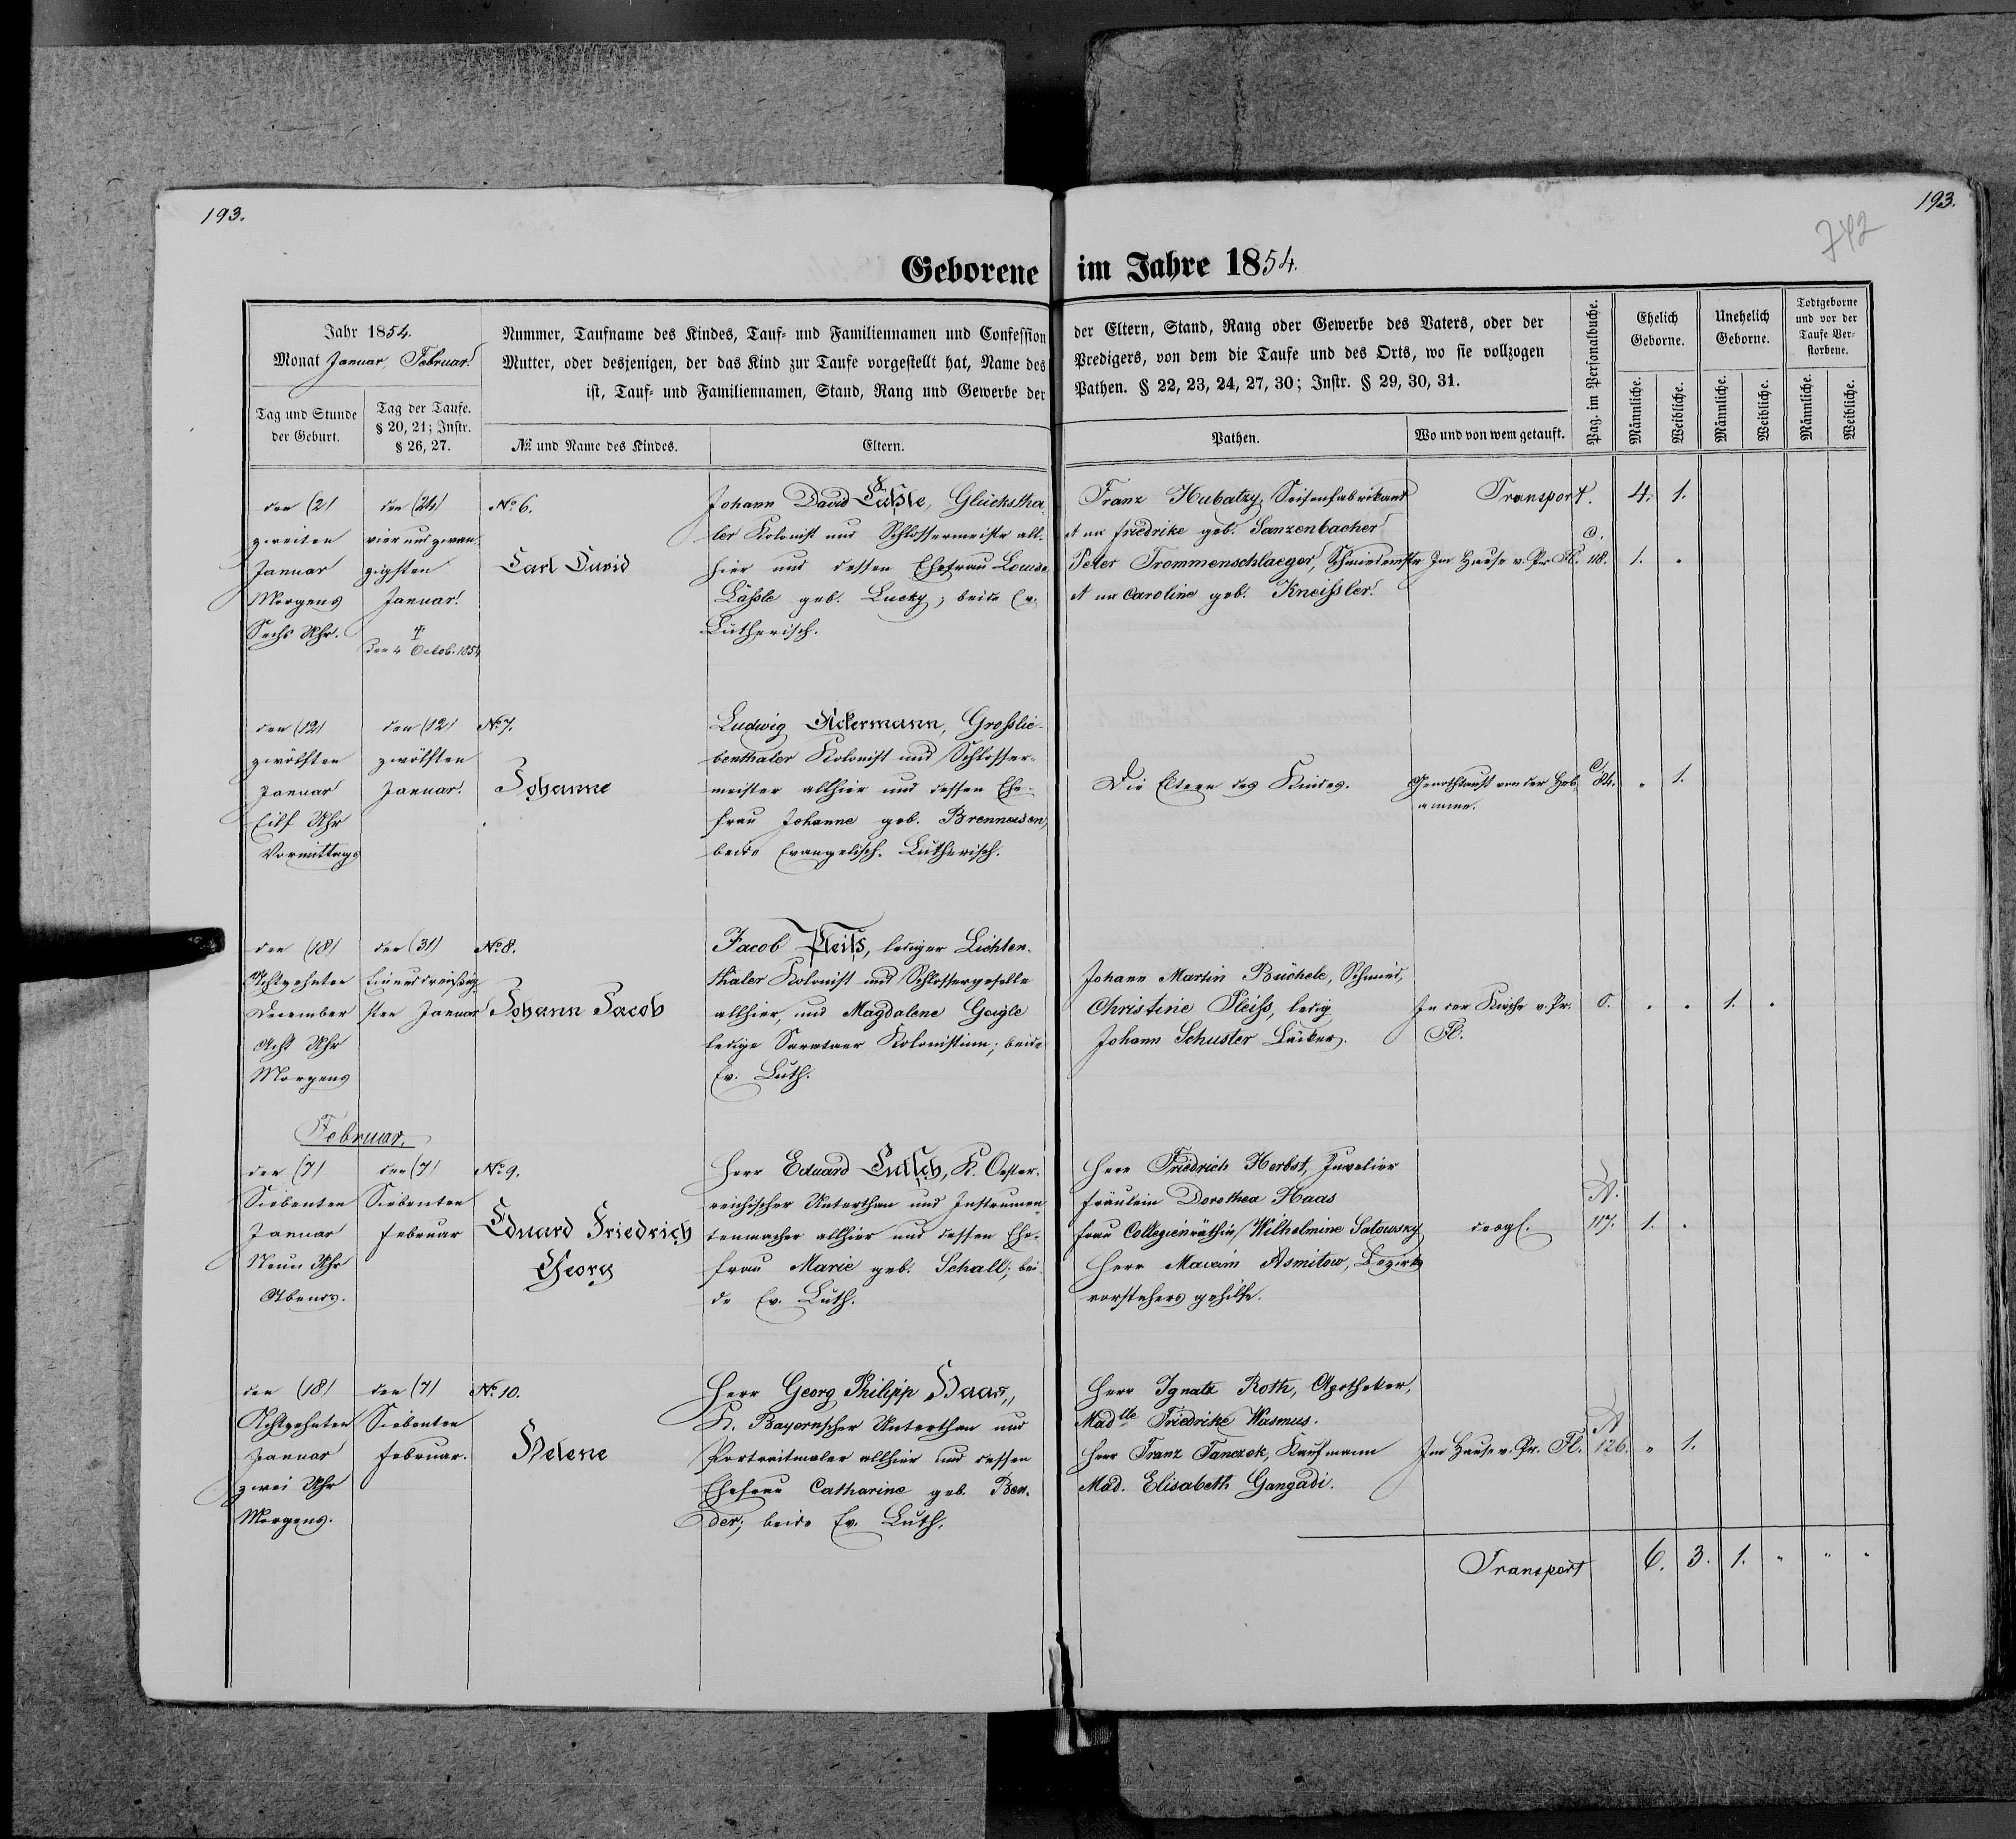 193.
193.
742
Geborene im Jahre 1854.
Jahr 1854.
Monat Januar, Februar.
Tag und Stunde der Geburt.
Tag der Taufe. § 20, 21; Instr. § 26, 27.
Nummer, Taufname des Kindes, Tauf- und Familiennamen und Confession der Eltern, Stand, Rang oder Gewerbe des Vaters, oder der
Mutter, oder desjenigen, der das Kind zur Taufe vorgestellt hat, Name des Predigers, von dem die Taufe und des Orts, wo sie vollzogen
ist, Tauf- und Familiennamen, Stand, Rang und Gewerbe der Pathen. § 22, 23, 24, 27, 30; Instr. § 29, 30, 31.
№ und Name des Kindes.
Eltern.
Pathen.
Wo und von wem getauft.
Pag. im Personalbuche.
Ehelich Geborne.
Unehelich Geborne.
Todtgeborne und vor der Taufe Verstorbene.
Männliche. Weibliche. Männliche. Weibliche. Männliche. Weibliche.
Transport. 4. 1.
den (2)
zweiten
Januar
Morgens
Sechs Uhr.
den (24)
vier und zwan-
zigsten
Januar.
den 4 Octob. 1854
No 6.
Carl David
Johann David Läßle, Glückstha-
ler Kolonist und Schlossermeister all-
hier und dessen Ehefrau Louise
Läßle geb. Lucky; beide Ev.
Lutherisch.
Franz Hubatzy, Seifenfabrikant
et ux Friedrike geb. Sanzenbacher
Peter Trommenschlaeger, Schmiedemstr
et ux Caroline geb. Kneissler.
Im Hause v. Pr. Fl. 118. 1. "
den (12)
zwölften
Januar
Eilf Uhr
Vormittags
den (12)
zwölften
Januar.
No 7.
Johanne
Ludwig Ackermann, Grosslie-
benthaler Kolonist und Schlosser-
meister allhier und dessen Ehe-
frau Johanne geb. Brenneisen,
beide Evangelisch. Lutherisch.
Die Eltern des Kindes.
Genothtauft von der Heb-
amme.
C 84. " 1.
den (18)
Achtzehnten
December
Acht Uhr
Morgens
den (31)
Einunddreißig-
sten Januar
No 8.
Johann Jacob
Jacob Pleiß, lediger Lichten-
thaler Kolonist und Schlossergeselle
allhier, und Magdalene Geigle
ledige Sarataer Kolonistinn; beide
Ev. Luth.
Johann Martin Büchele, Schmied,
Christine Pleiss, ledig
Johann Schuster Bäcker.
In der Kirche v. Pr.
Fl.
0. " " 1. "
Februar.
den (7)
Siebenten
Januar
Neun Uhr
Abends.
den (7)
Siebenten
Februar
No 9.
Eduard Friedrich
Georg
Herr Eduard, K. Oester-
reichischer Unterthan und Instrumen-
tenmacher allhier und dessen Ehe-
frau Marie geb. Schall; bei-
de Ev. Luth.
Herr Friedrich Herbst, Juvelier
Fräulein Dorothea Haas
Frau Collegienräthin Wilhelmine Satowsky
Herr Maxim Asmitow, Bezirks-
vorstehers gehilfe.
desgl.
A. 117. 1. "
den (18)
Achtzehnten
Januar
zwei Uhr
Morgens.
den (7)
Siebenten
Februar.
No. 10.
Helene
Herr Georg Philipp Haas,
K. Bayernscher Unterthan und
Portraitmaler allhier und dessen
Ehefrau Catharine geb. Ben-
der; beide Ev. Luth.
Herr Ignatz Roth, Apotheker,
Madlle Friedrike Wasmus.
Herr Franz Tanczek, Kaufmann
Mad. Elisabeth Gangadi.
Im Hause v. Pr. Fl. A 126. " 1.
Transport 6. 3. 1. " " "